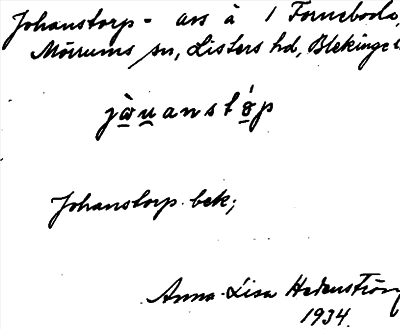 Johanstorp - avs å 1 Forneboda,
Mörrums sn, Listers hd, Blekinge l.
jòu̯anstó̱p
Johanstorp. bek;
Anna-Lisa Hedenström
1934.